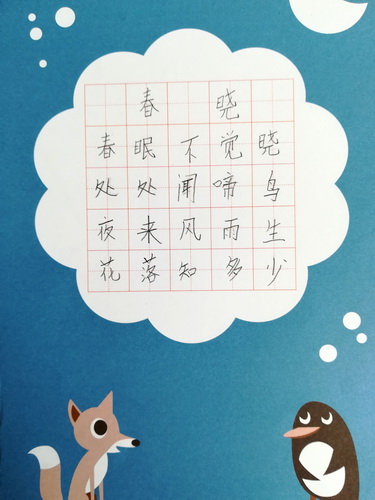 春晓
春眠不觉晓
处处闻啼鸟
夜来风雨生
花落知多少